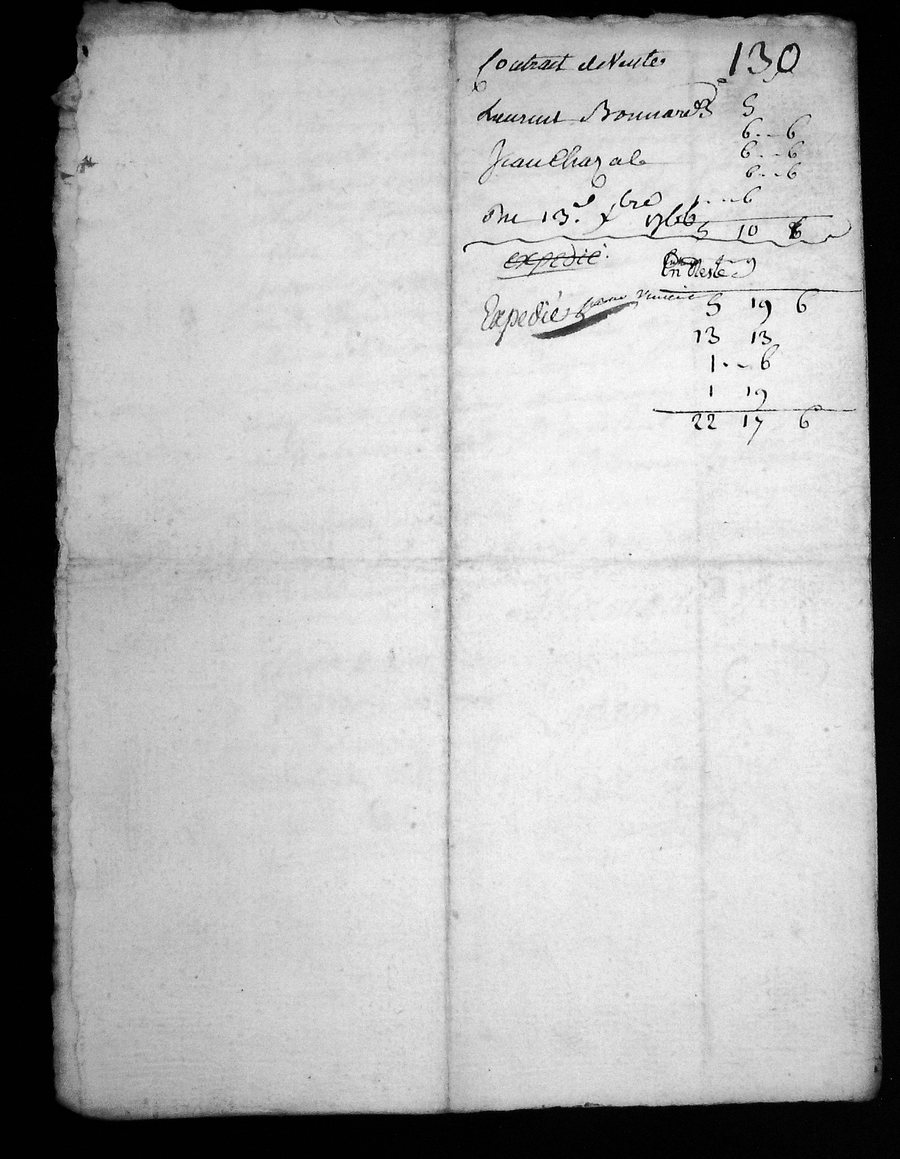 Contrat de Vente 130
Laurent Bonnard 5
6 . . 6
Jean Chazal 6 . . 6
6 . . 6
Du 13.e Xbre 1766 1 . . 6
5 10 6
expedié.
En Reste 9
Expedié 5 19 6
13 13
1 . . 6
1 19
22 17 6